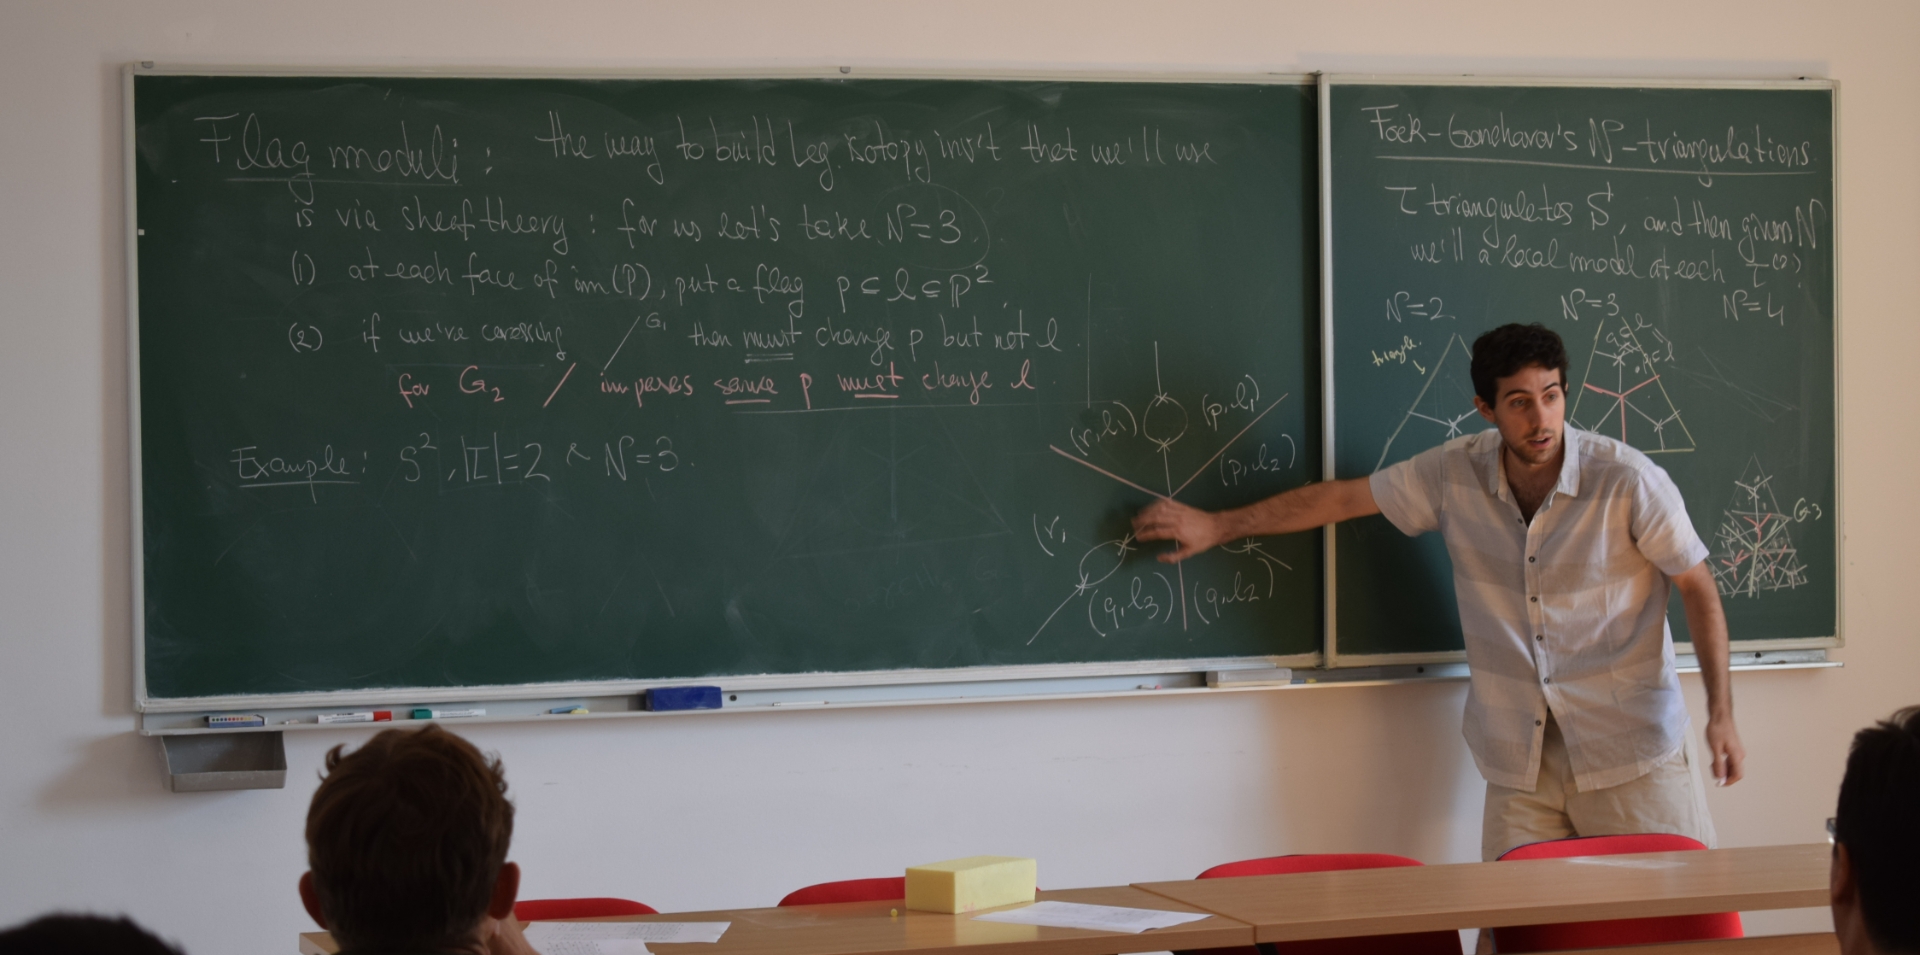 Flag moduli: the way to build Leg. isotopy inv't that we'll use
is via sheaf theory: for us let's take N=3.
(1) at each face of im(P), put a flag p ⊆ l ⊆ ℙ²,
(2) if we're crossing / G₁ then must change p but not l.
for G₂ / imposes same p must change l.
Example: S², |I|=2 ^ N=3.
(r,l₁) (p,l₁)
(p,l₂)
(r,
(q,l₃) (q,l₂)
Fock-Goncharov's N-triangulations.
τ triangulates S, and then given N
we'll a local model at each τ⁽²⁾:
N=2 N=3 N=4
triangle.
G₃